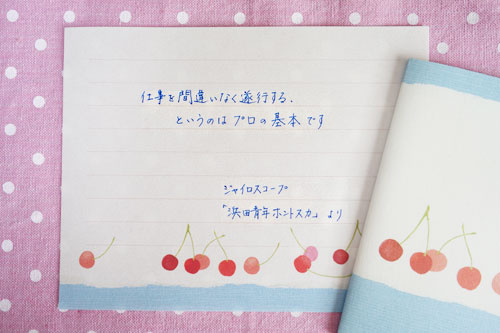 仕事を間違いなく遂行する.
というのはプロの基本です
ジャイロスコープ
「浜田青年ホントスカ」より